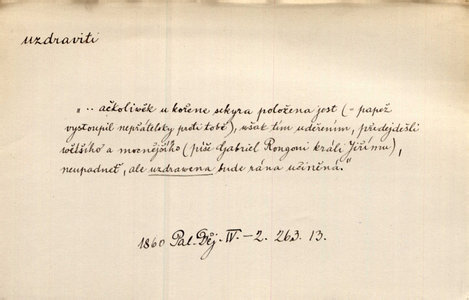 uzdraviti
„ ·· ačkolivěk u kořene sekyra položena jest (– papež
vystoupil nepřátelsky proti tobě), však tím udeřením, předejdešli
většího a mocnějšího (píše Gabriel Rongoni králi Jiřímu),
neupadneť, ale uzdravena bude rána učiněná.“
1860 Pal. Děj. IV – 2. 263. 13.